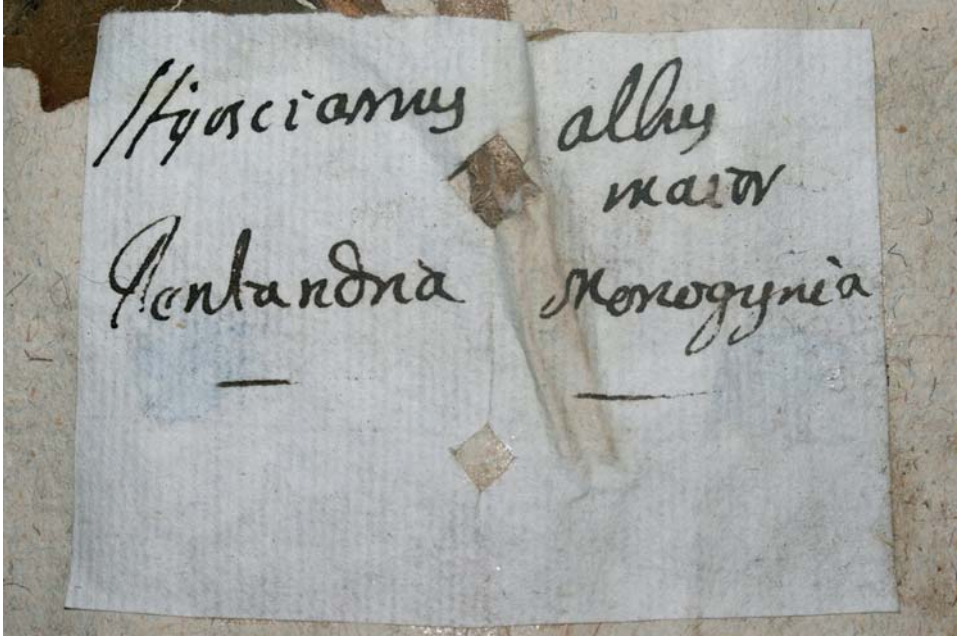 Hyosciamus albus
maior
Pentandria Monogynia